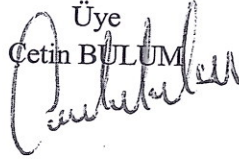 Üye
Çetin BULUM